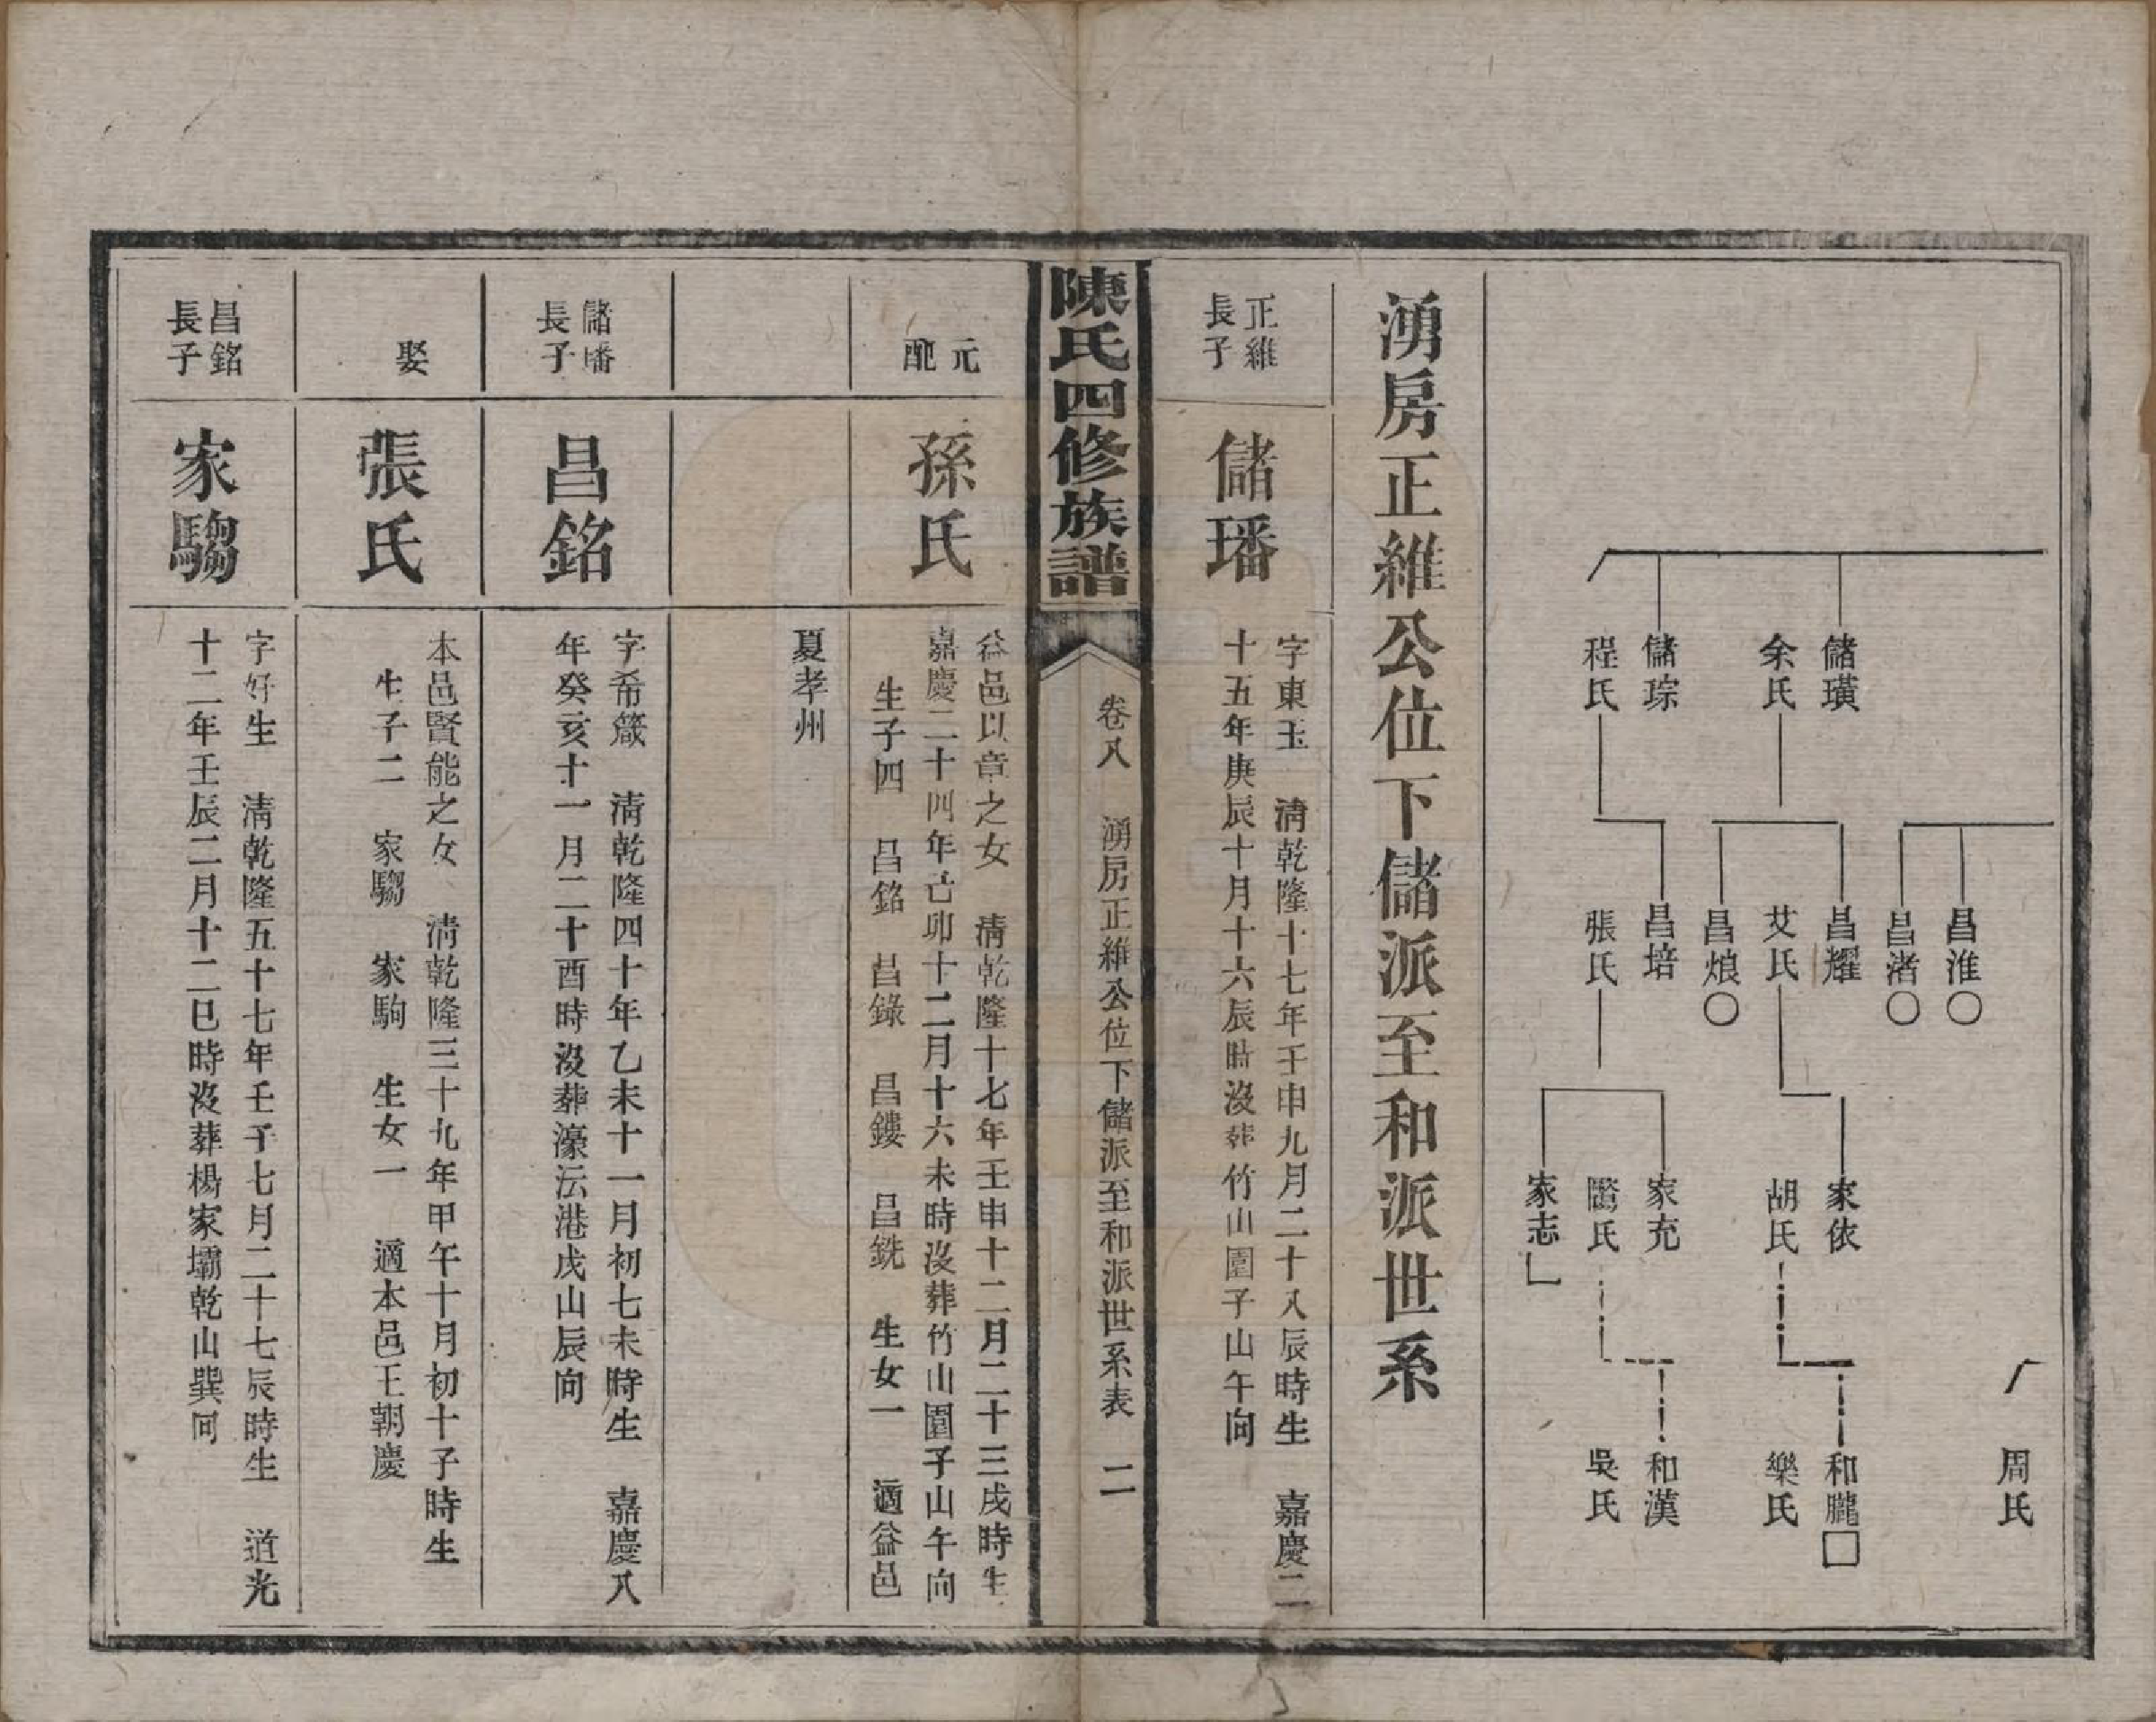 周氏
昌淮〇
昌渚〇
儲璜
余氏
昌耀
艾氏
昌烺〇
家依
胡氏
和朧□
樂氏
儲琮
程氏
昌培
張氏
家充
氏
家志
和漢
吳氏
湧房正維公位下儲派至和派世系
正維
長子
儲璠
字東玉　清乾隆十七年壬申九月二十八辰時生　嘉慶二
十五年庚辰十月十六辰時沒葬竹山園子山午向
陳氏四修族譜
卷八　湧房正維公位下儲派至和派世系表　二
元
配
孫氏
益邑以章之女　清乾隆十七年壬申十二月二十三戌時生
嘉慶二十四年己卯十二月十六未時沒葬竹山園子山午向
生子四　昌銘　昌錄　昌鏤　昌銑　生女一　適益邑
夏孝州
儲璠
長子
昌銘
字希箴　清乾隆四十年乙未十一月初七未時生　嘉慶八
年癸亥十一月二十酉時沒葬濠沄港戌山辰向
娶
張氏
本邑賢能之女　清乾隆三十九年甲午十月初十子時生
生子二　家騶　家駒　生女一　適本邑王朝慶
昌銘
長子
家騶
字好生　清乾隆五十七年壬子七月二十七辰時生　道光
十二年壬辰二月十二巳時沒葬楊家壩乾山巽向